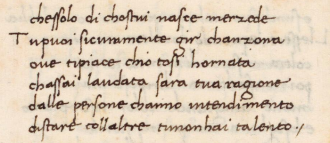 chessolo di chostui nasce merzede
Tu puoi sicuramente gir chanzona
oue tipiace chio tosi hornata
chassai laudata sara tua ragione
dalle persone channo intendimento
distare collaltre tunonhai talento ./